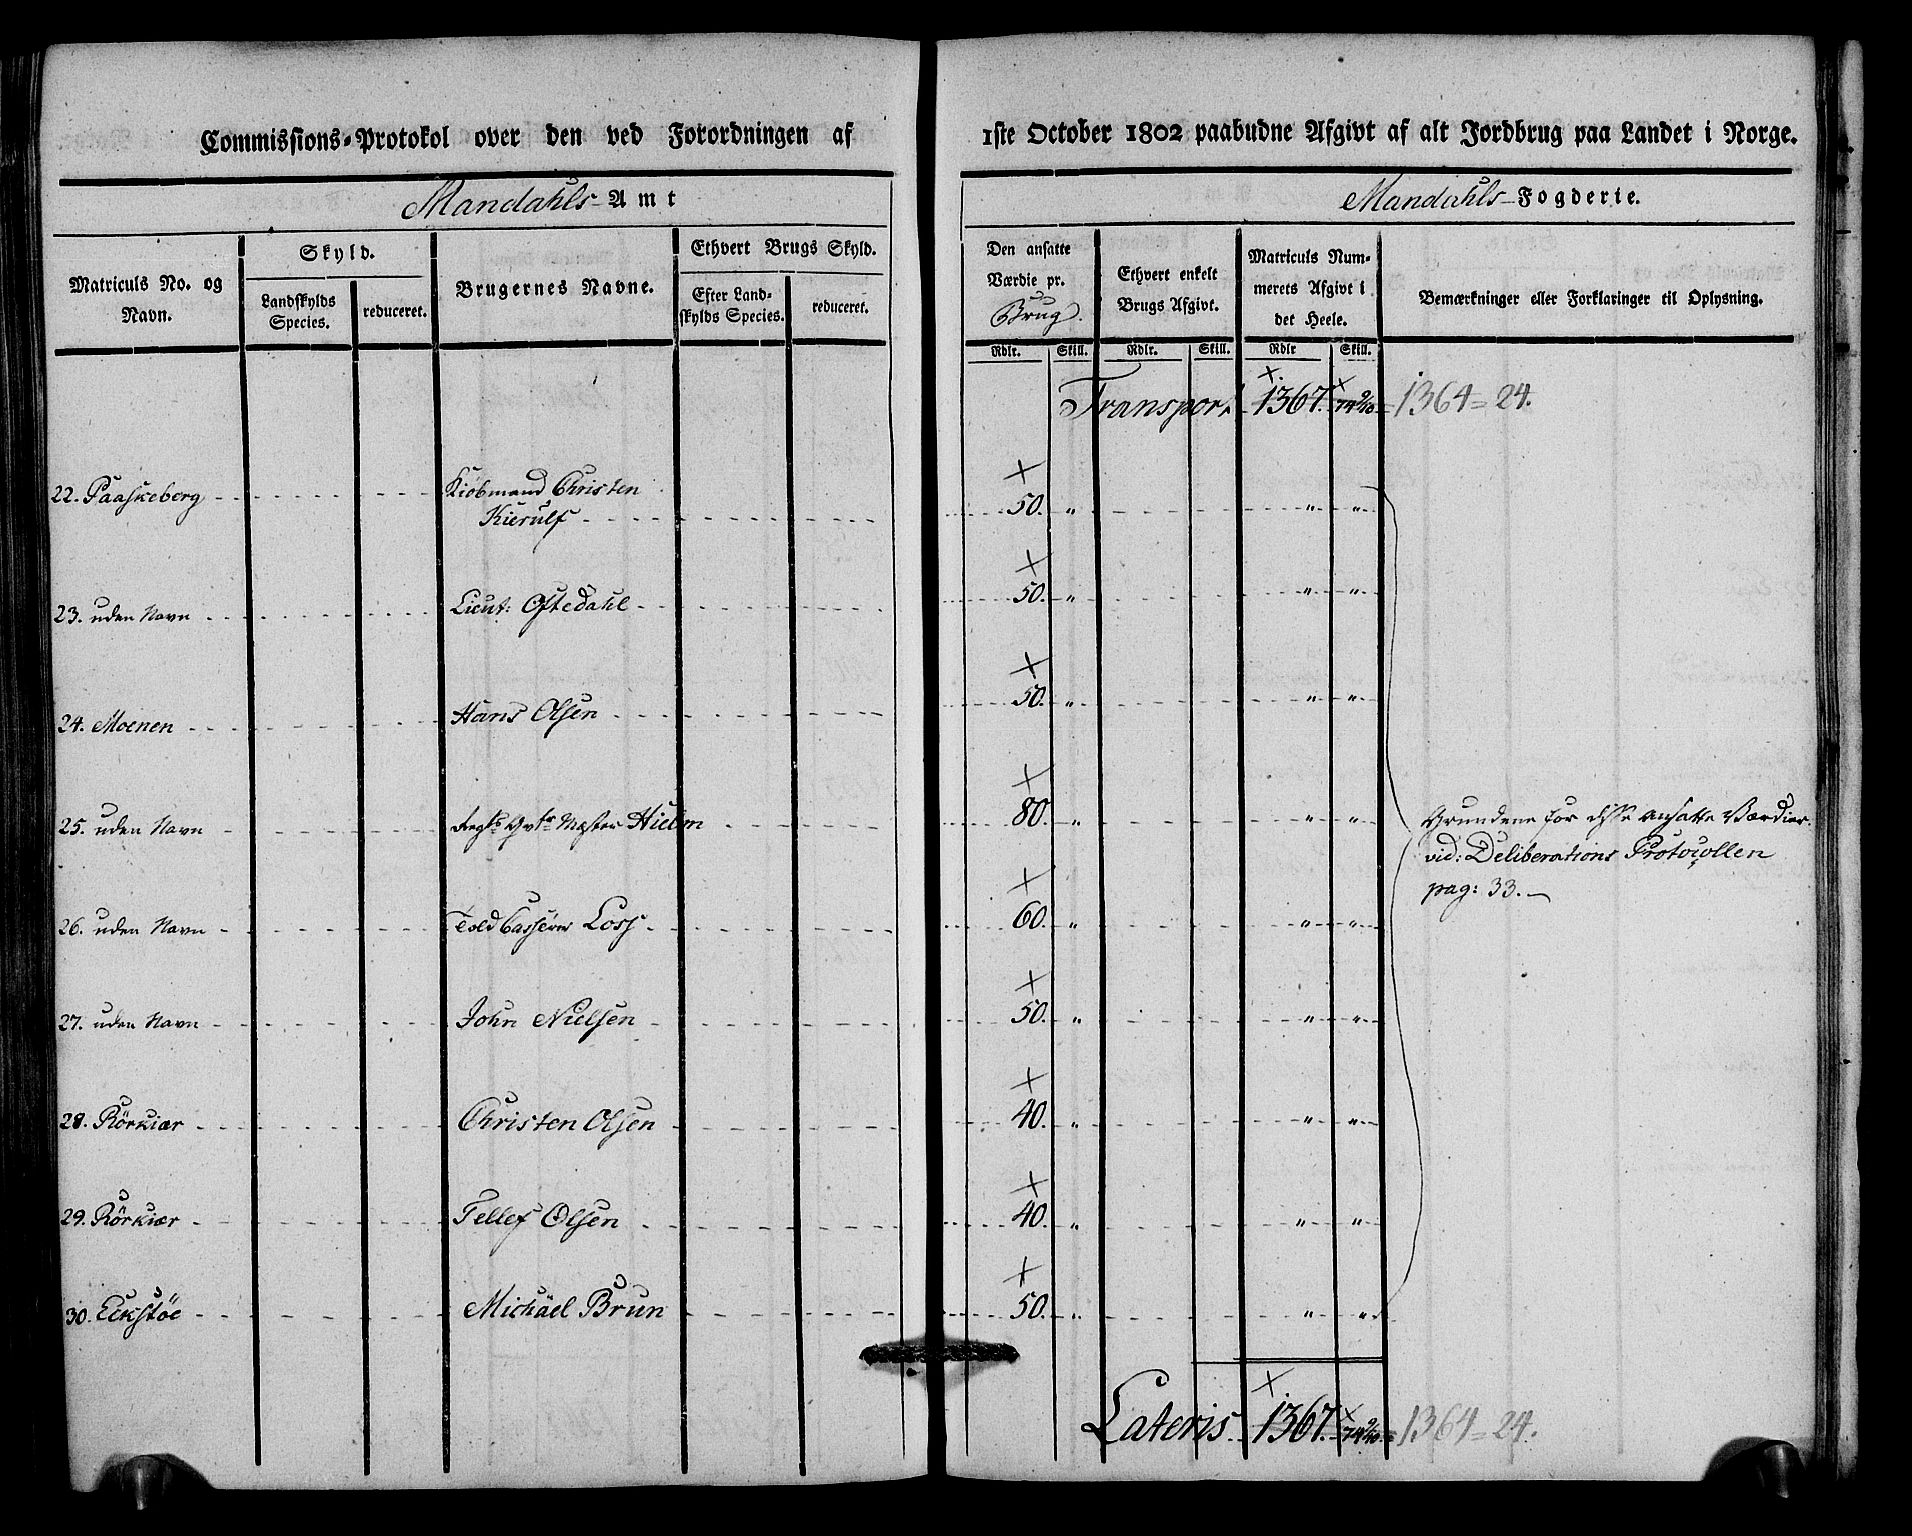 Commissions-Protokol over den ved Forordningen af 1ste October 1802 paabudne Afgivt af alt Jordbrug paa Landet i Norge.
Mandahls Amt
Mandahls Fogderie.
Matriculs No. og Navn.
Skyld.
Landskylds Species.
reduceret.
Brugernes Navne.
Ethvert Brugs Skyld.
Efter Landskylds Species.
reduceret.
Den ansatte Værdie pr. Brug.
Ethvert enkelt Brugs Afgivt.
Matriculs Nummerets Afgivt i det Heele.
Bemærkninger eller Forklaringer til Oplysning.
Rdlr. Skill. Rdlr. Skill. Rdlr Skill.
Transport 1367. 1364 = 24.
22. Paaskeberg Kiöbmand Christen
Kierulf 50. " " "
23. uden Navn Lieut: Oftedahl 50. " " "
24. Moenen Hans Olsen 50. " " "
25. uden Navn Hielm 80. " " "
26. uden Navn Told Casserer Loss 60. " " "
27. uden Navn John Nielsen 50. " " "
28. Rörkiær Christen Olsen 40. " " "
29. Rörkiær Tellef Olsen 40. " " "
30. Eckstöe Michäel Brun 50. " " "
Grundene for disse ansatte Værdier
vid: Deliberations Protocollen
pag: 33.
Lateris 1367. 1364 = 24.